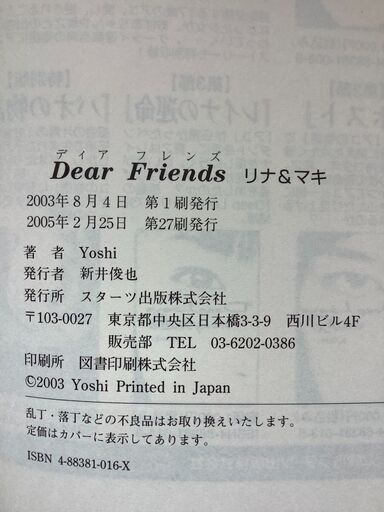 【第3部】
【特別版】
『レイナの運命』
ディア フレンズ
Dear Friends リナ&マキ
2003年8月4日 第1刷発行
2005年2月25日 第27刷発行
著 者 Yoshi
発行者 新井俊也
発行所 スターツ出版株式会社
〒103-0027 東京都中央区日本橋3-3-9 西川ビル4F
販売部 TEL 03-6202-0386
印刷所 図書印刷株式会社
©2003 Yoshi Printed in Japan
乱丁・落丁などの不良品はお取り換えいたします。
定価はカバーに表示してあります。
ISBN 4-88381-016-X